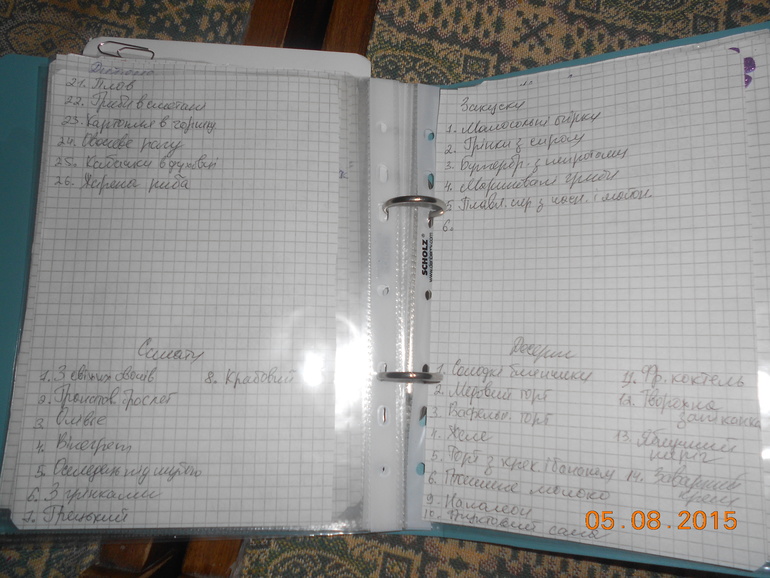 21. Плов
22. Гриби в сметані
23. Картопля в горщику
24. Овочеве рагу
25. Кабачки в духовці
26. Жарена риба
Салати
1. З свіжих овочів
2. 
3. Олівє
4. Вінегрет
5. Оселедець під шубою
6. З грінками
7. Грецький
8. Крабовий
SCHOLZ®
Закуски
1. Малосольні огірки
2. Грінки з сиром
3. Бутербр. з шпротами
4. Мариновані гриби
5. Плавл. сир з часн. і майон.
6.
Десерти
1. Солодкі блинчики
2. Медовий торт
3. Вафельн. торт
4. Желе
5. Торт з крек. і бананом
6. Пташине молоко
9. Наполеон
10. Фруктовий салат
11. Фр. коктель
12. Творожна
запіканка
13. Яблучний
пиріг
14. Заварний
крем
05.08.2015